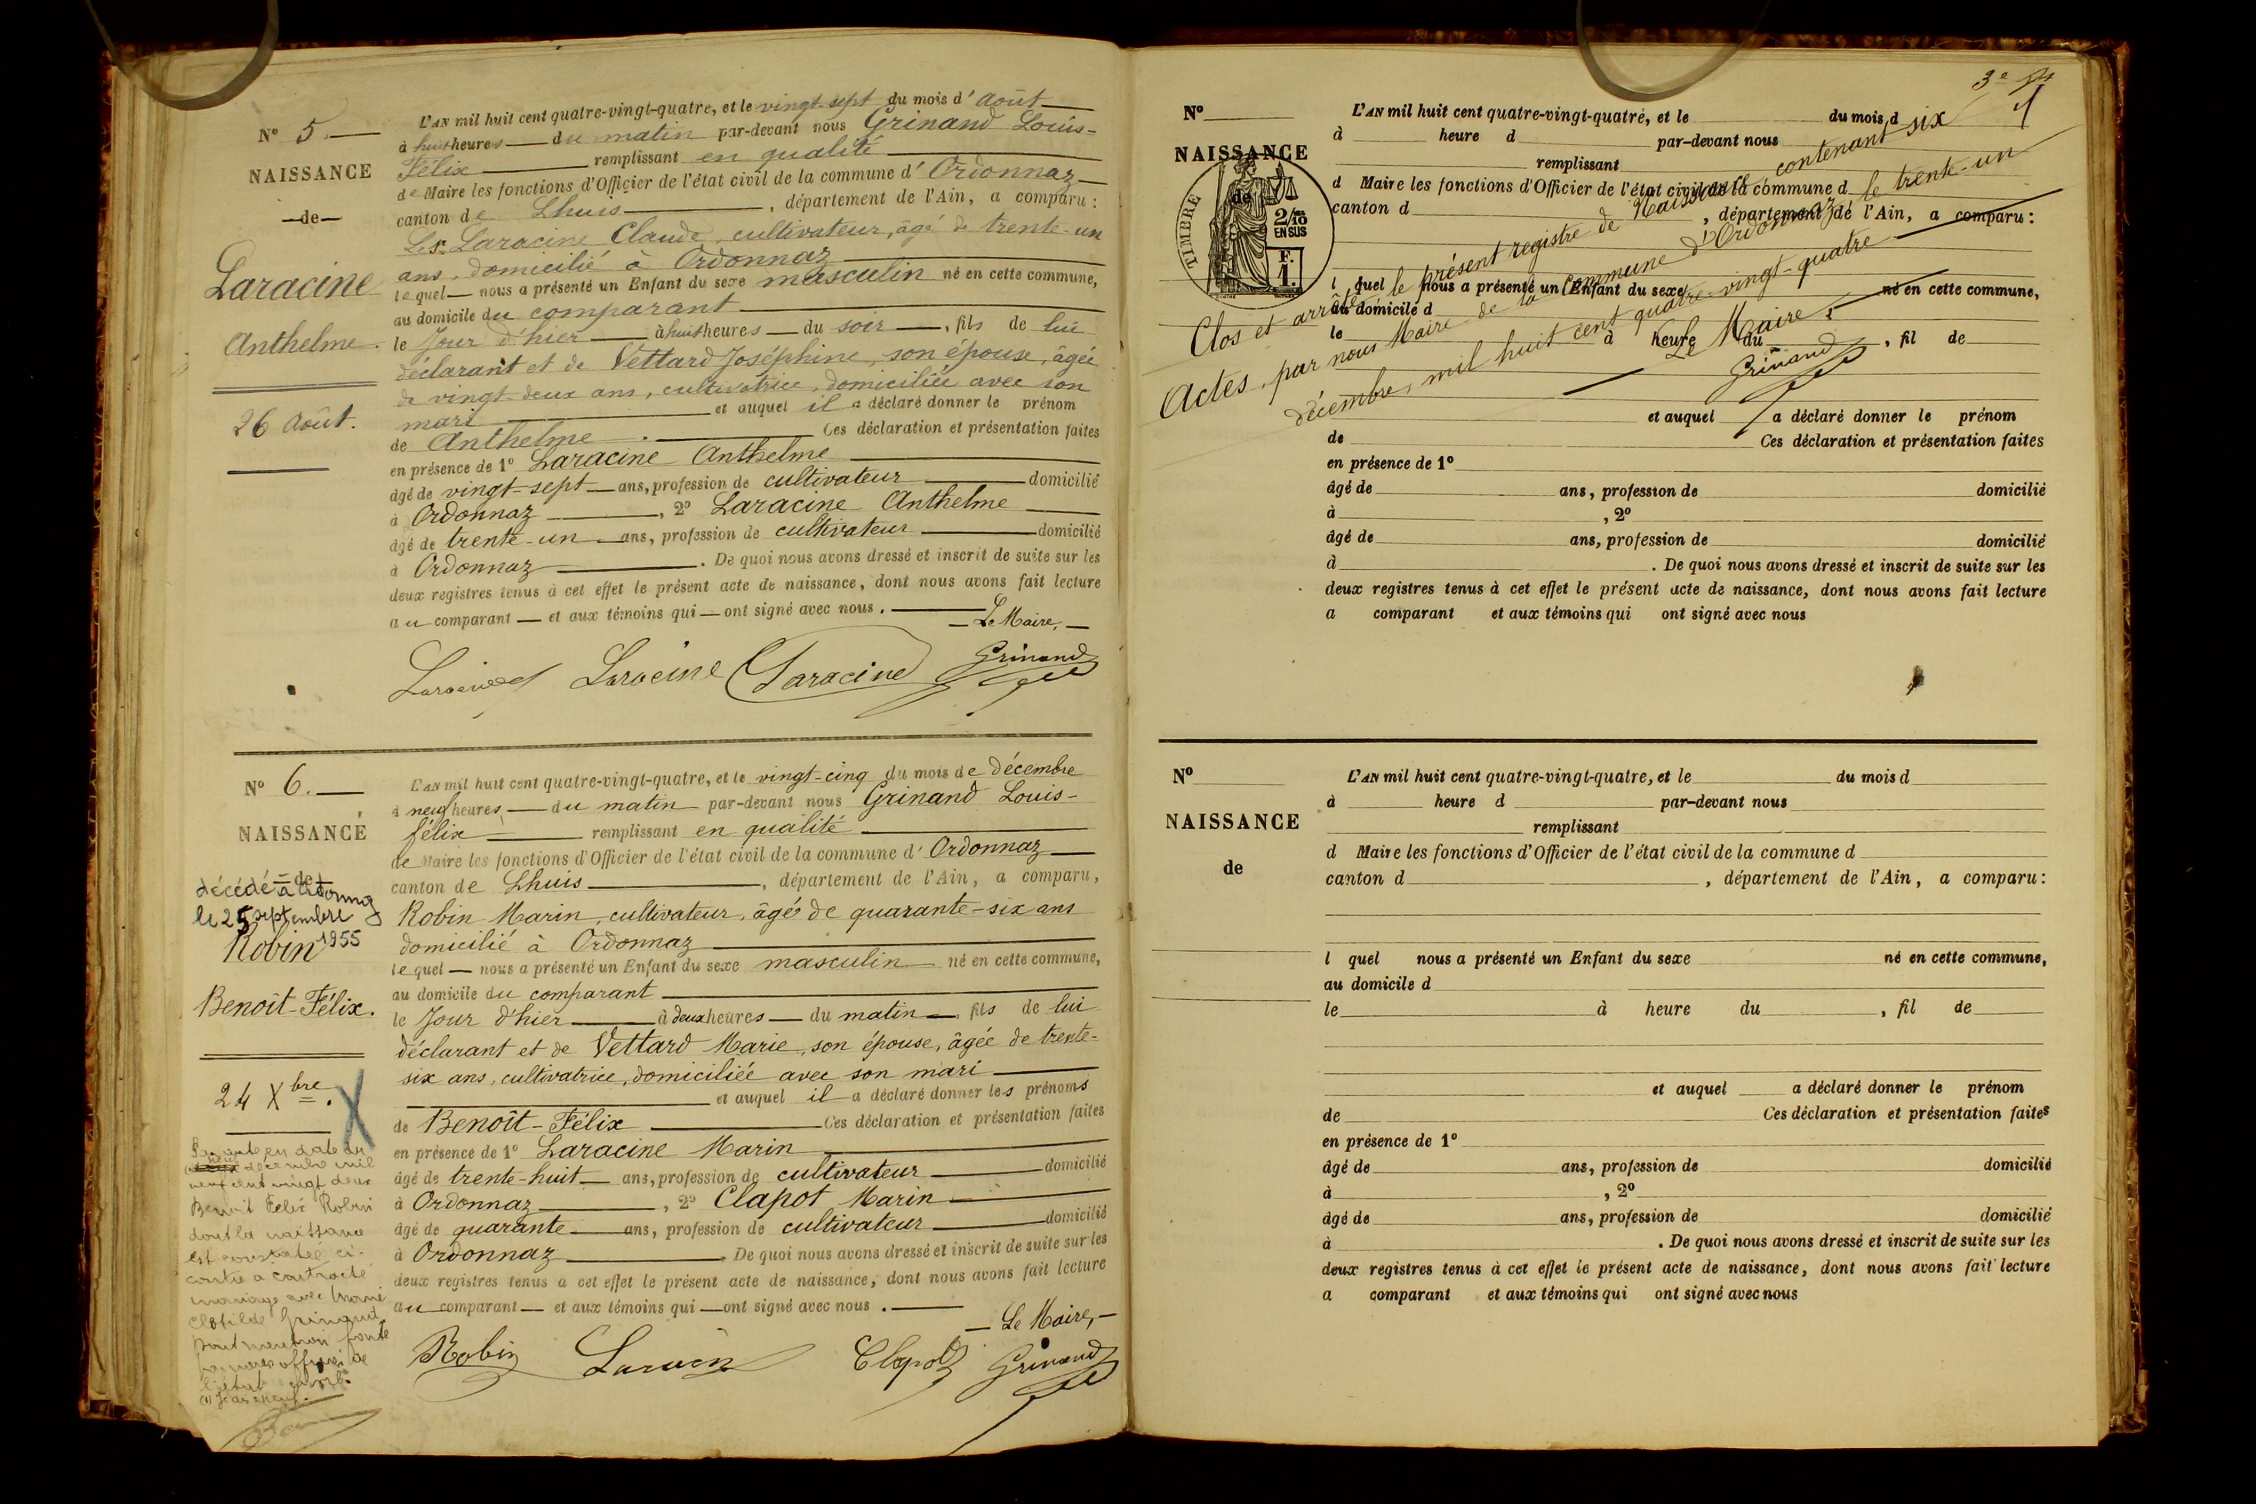 N° 5.
NAISSANCE
de
Laracine
Anthelme.
26 Août.
L'AN mil huit cent quatre-vingt-quatre, et le vingt-sept du mois d'Août
à huit heures du matin par-devant nous Grinand Louis-
Félix remplissant en qualité
de Maire les fonctions d'Officier de l'état civil de la commune d'Ordonnaz
canton de Lhuis, département de l'Ain, a comparu :
Laracine Claude, cultivateur, âgé de trente-un
ans, domicilié à Ordonnaz
lequel nous a présenté un Enfant du sexe masculin né en cette commune,
au domicile du comparant
le Jour d'hier à huit heures du soir, fils de lui
déclarant et de Vettard Joséphine, son épouse, âgée
de vingt-deux ans, cultivatrice, domiciliée avec son
mari et auquel il a déclaré donner le prénom
de Anthelme. Ces déclaration et présentation faites
en présence de 1° Laracine Anthelme
âgé de vingt-sept ans, profession de cultivateur domicilié
à Ordonnaz, 2° Laracine Anthelme
âgé de trente-un ans, profession de cultivateur domicilié
à Ordonnaz. De quoi nous avons dressé et inscrit de suite sur les
deux registres tenus à cet effet le présent acte de naissance, dont nous avons fait lecture
au comparant et aux témoins qui ont signé avec nous.
Le Maire,
Laracine Laracine Laracine Grinand
N° 6.
NAISSANCE
de
décédé à Ordonnaz
le 25 septembre
1955
Robin
Benoît-Félix.
24 Xbre.
X
décembre mil
neuf cent vingt deux
Benoit Félix Robin
dont la naissance
est constatée ci-
contre a contracté
mariage avec
Clotilde
L'AN mil huit cent quatre-vingt-quatre, et le vingt-cinq du mois de décembre
à neuf heures du matin par-devant nous Grinand Louis-
félix remplissant en qualité
de Maire les fonctions d'Officier de l'état civil de la commune d'Ordonnaz
canton de Lhuis, département de l'Ain, a comparu,
Robin Marin, cultivateur, âgé de quarante-six ans
domicilié à Ordonnaz
lequel nous a présenté un Enfant du sexe masculin né en cette commune,
au domicile du comparant
le Jour d'hier à deux heures du matin, fils de lui
déclarant et de Vettard Marie, son épouse, âgée de trente-
six ans, cultivatrice, domiciliée avec son mari
et auquel il a déclaré donner les prénoms
de Benoît-Félix Ces déclaration et présentation faites
en présence de 1° Laracine Marin
âgé de trente-huit ans, profession de cultivateur domicilié
à Ordonnaz, 2° Clapot Marin
âgé de quarante ans, profession de cultivateur domicilié
à Ordonnaz. De quoi nous avons dressé et inscrit de suite sur les
deux registres tenus à cet effet le présent acte de naissance, dont nous avons fait lecture
au comparant et aux témoins qui ont signé avec nous.
Le Maire,
Robin Clapot Grinand
N°
NAISSANCE
de
TIMBRE
2/10
EN SUS
F.
1.
L'AN mil huit cent quatre-vingt-quatre, et le du mois d
à heure d par-devant nous
remplissant
d Maire les fonctions d'Officier de l'état civil de la commune d
canton d , département de l'Ain, a comparu :
l quel nous a présenté un Enfant du sexe né en cette commune,
au domicile d
le à heure du , fil de
et auquel a déclaré donner le prénom
de Ces déclaration et présentation faites
en présence de 1°
âgé de ans, profession de domicilié
à , 2°
âgé de ans, profession de domicilié
à . De quoi nous avons dressé et inscrit de suite sur les
deux registres tenus à cet effet le présent acte de naissance, dont nous avons fait lecture
a comparant et aux témoins qui ont signé avec nous
Clos et arrêté le présent registre de Naissance, contenant six
Actes, par nous Maire de la commune d'Ordonnaz, le trente-un
décembre, mil huit cent quatre-vingt-quatre
Le Maire,
Grinand
N°
NAISSANCE
de
L'AN mil huit cent quatre-vingt-quatre, et le du mois d
à heure d par-devant nous
remplissant
d Maire les fonctions d'Officier de l'état civil de la commune d
canton d , département de l'Ain, a comparu :
l quel nous a présenté un Enfant du sexe né en cette commune,
au domicile d
le à heure du , fil de
et auquel a déclaré donner le prénom
de Ces déclaration et présentation faites
en présence de 1°
âgé de ans, profession de domicilié
à , 2°
âgé de ans, profession de domicilié
à . De quoi nous avons dressé et inscrit de suite sur les
deux registres tenus à cet effet le présent acte de naissance, dont nous avons fait lecture
a comparant et aux témoins qui ont signé avec nous